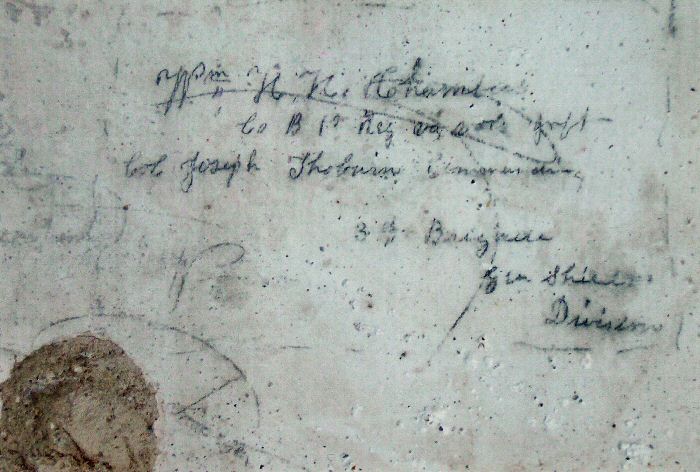 Wm H. H. Chambers
Co B 1st Reg va vols Inft
Col Joseph Thoburn Commanding
3rd Brigade
Gen Shields
Division